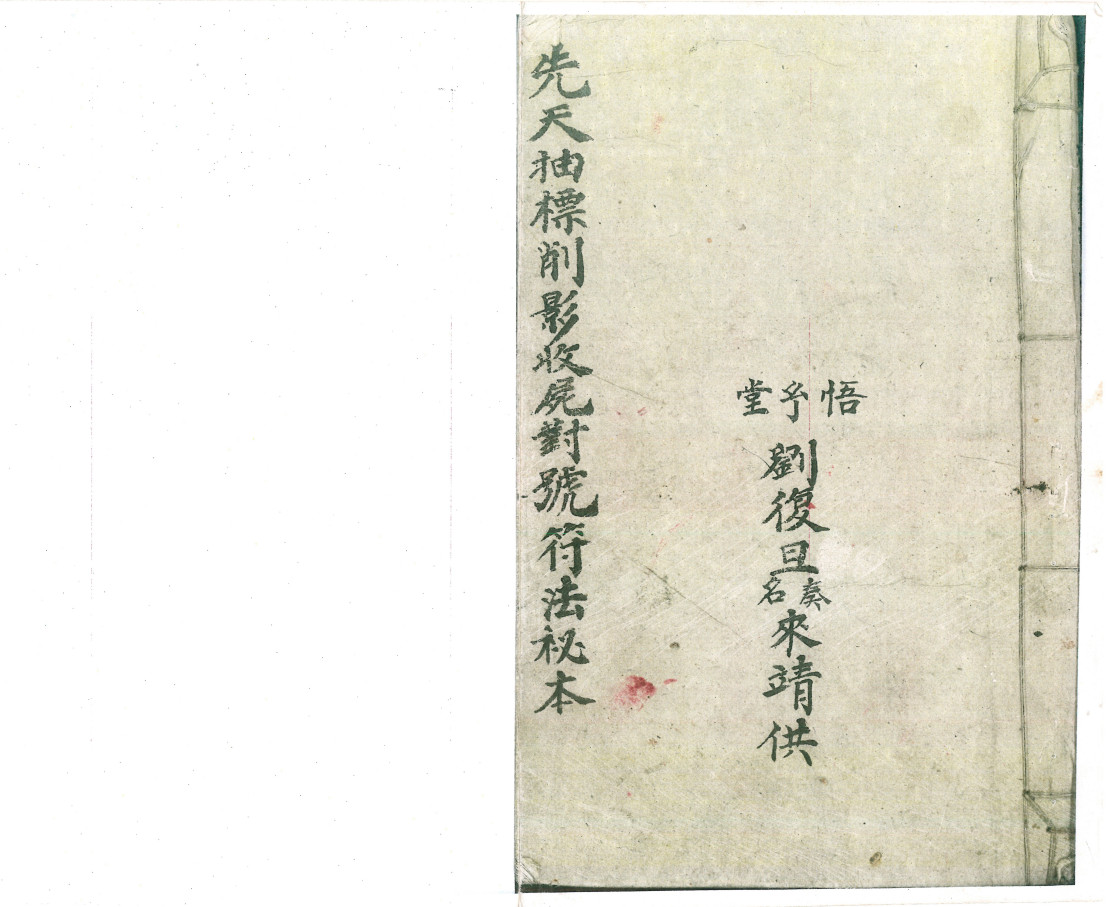 悟 堂
劉復旦奏名來靖供
先天抽標削影收屍對號符法祕本